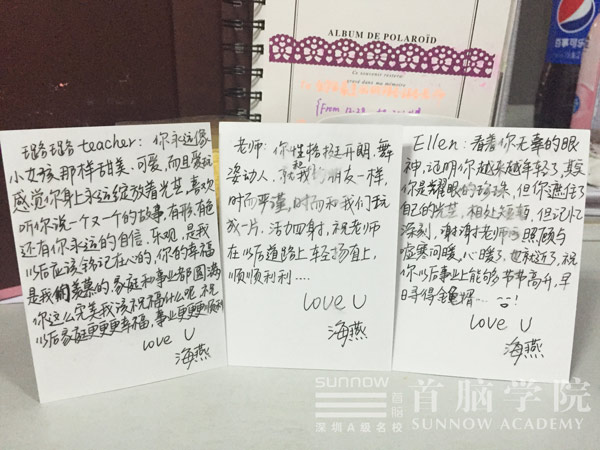 ALBUM DE POLAROÏD
Ce souvenir restera
gravé dans ma mémoire
百事可乐
璐璐 teacher: 你永远像
小女孩那样甜美、可爱,而且爱玩
感觉你身上永远绽放着光芒,喜欢
听你说一个又一个的故事,有形有色
还有你永远的自信、乐观,是我
以后应该铭记在心的,你的幸福
是我们羡慕的家庭和事业都圆满
你这么完美我该祝福什么呢,祝
以后家庭更更更幸福,事业更更更顺利
love U
海燕
老师:你性格挺开朗、舞
姿动人,就我起朋友一样,
时而严谨,时而和我们玩
成一片,活力四射,祝老师
在以后道路上轻场直上,
顺顺利利....
love U
海燕
Ellen: 看着你无辜的眼
神,证明你越来越年轻了,其实
你是耀眼的珍珠,但你遮住了
自己的光芒,相处短暂,但记忆
深刻,谢谢老师的照顾与
嘘寒问暖,心暖了,也就近了,祝
你以后事业上能够节节高升,早
日寻得金龟婿...
love U
海燕
SUNNOW
首脑
深圳A级名校
首脑学院
SUNNOW ACADEMY